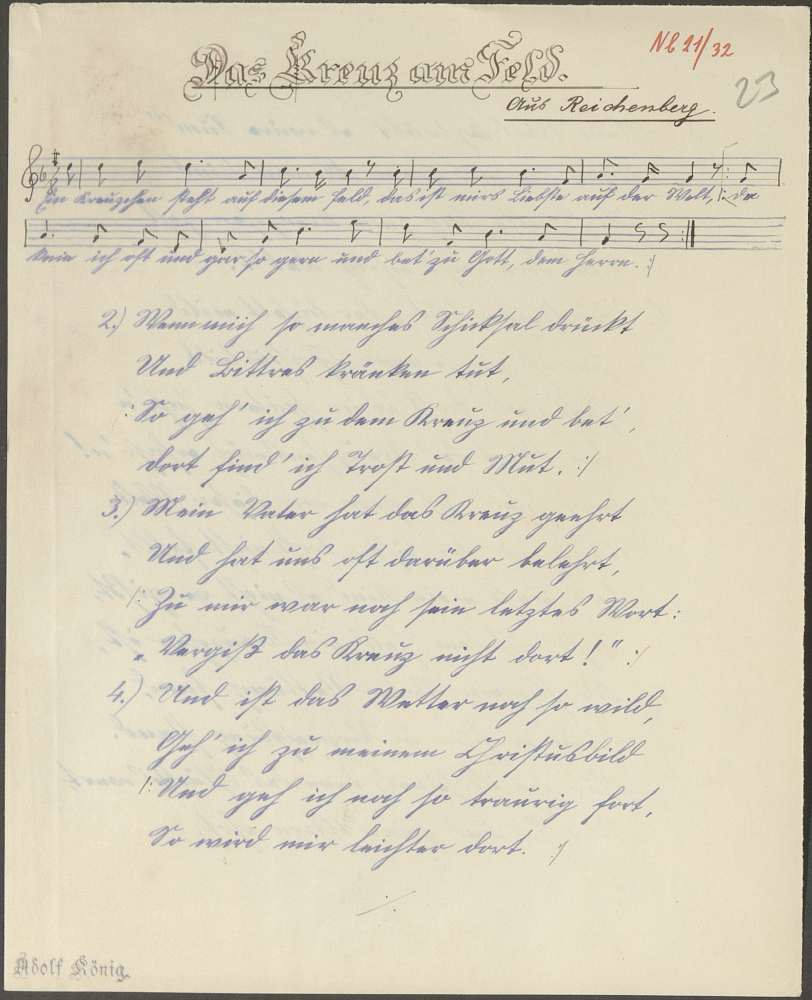 Das Kreuz am Feld.
Nl 21/32
23
Aus Reichenberg.
Ein Kreuzchen steht auf diesem Feld, das ist mirs Liebste auf der Welt, |: da
knie ich oft und gar so gern und bet' zu Gott, dem Herrn. :|
2.) Wenn mich so manches Schicksal drückt
Und Bittres kränken tut,
|: So geh' ich zu dem Kreuz und bet',
dort find' ich Trost und Mut. :|
3.) Mein Vater hat das Kreuz geehrt
Und hat uns oft darüber belehrt,
|: Zu mir war noch sein letztes Wort:
„Vergiß das Kreuz nicht dort!" :|
4.) Und ist das Wetter noch so wild,
Geh' ich zu meinem Christusbild
|: Und geh ich noch so traurig fort,
So wird mir leichter dort. :|
Adolf König.